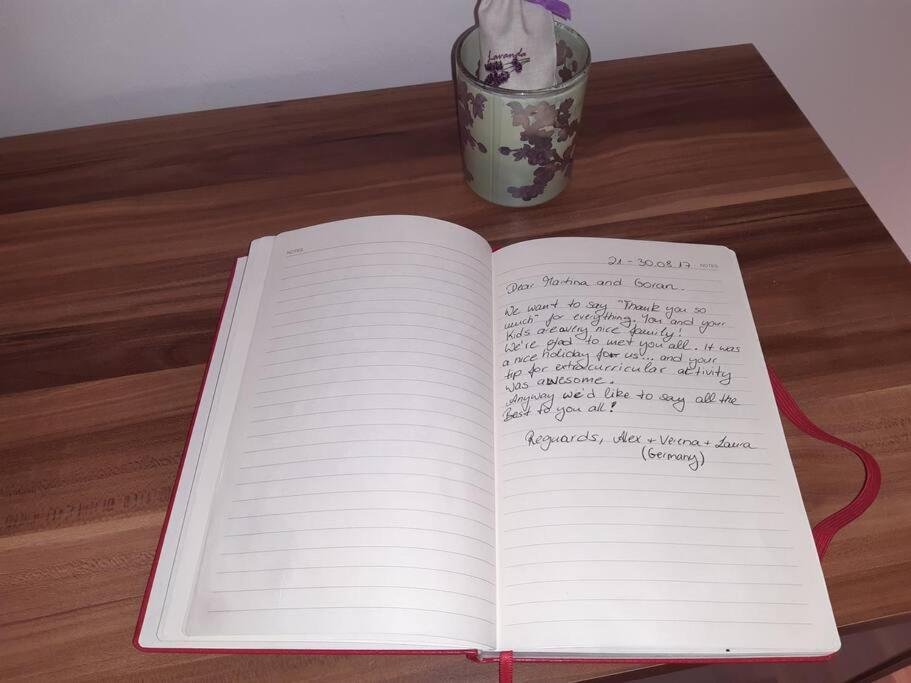 Lavanda
NOTES
21 - 30.08.17 NOTES
Dear Martina and Goran.
We want to say "Thank you so
much" for everything. You and your
kids are a very nice family!
We're glad to met you all. It was
a nice holiday for us... and your
tip for extracurricular activity
was awesome.
Anyway we'd like to say all the
Best to you all!
Reguards, Alex + Verena + Laura
(Germany)